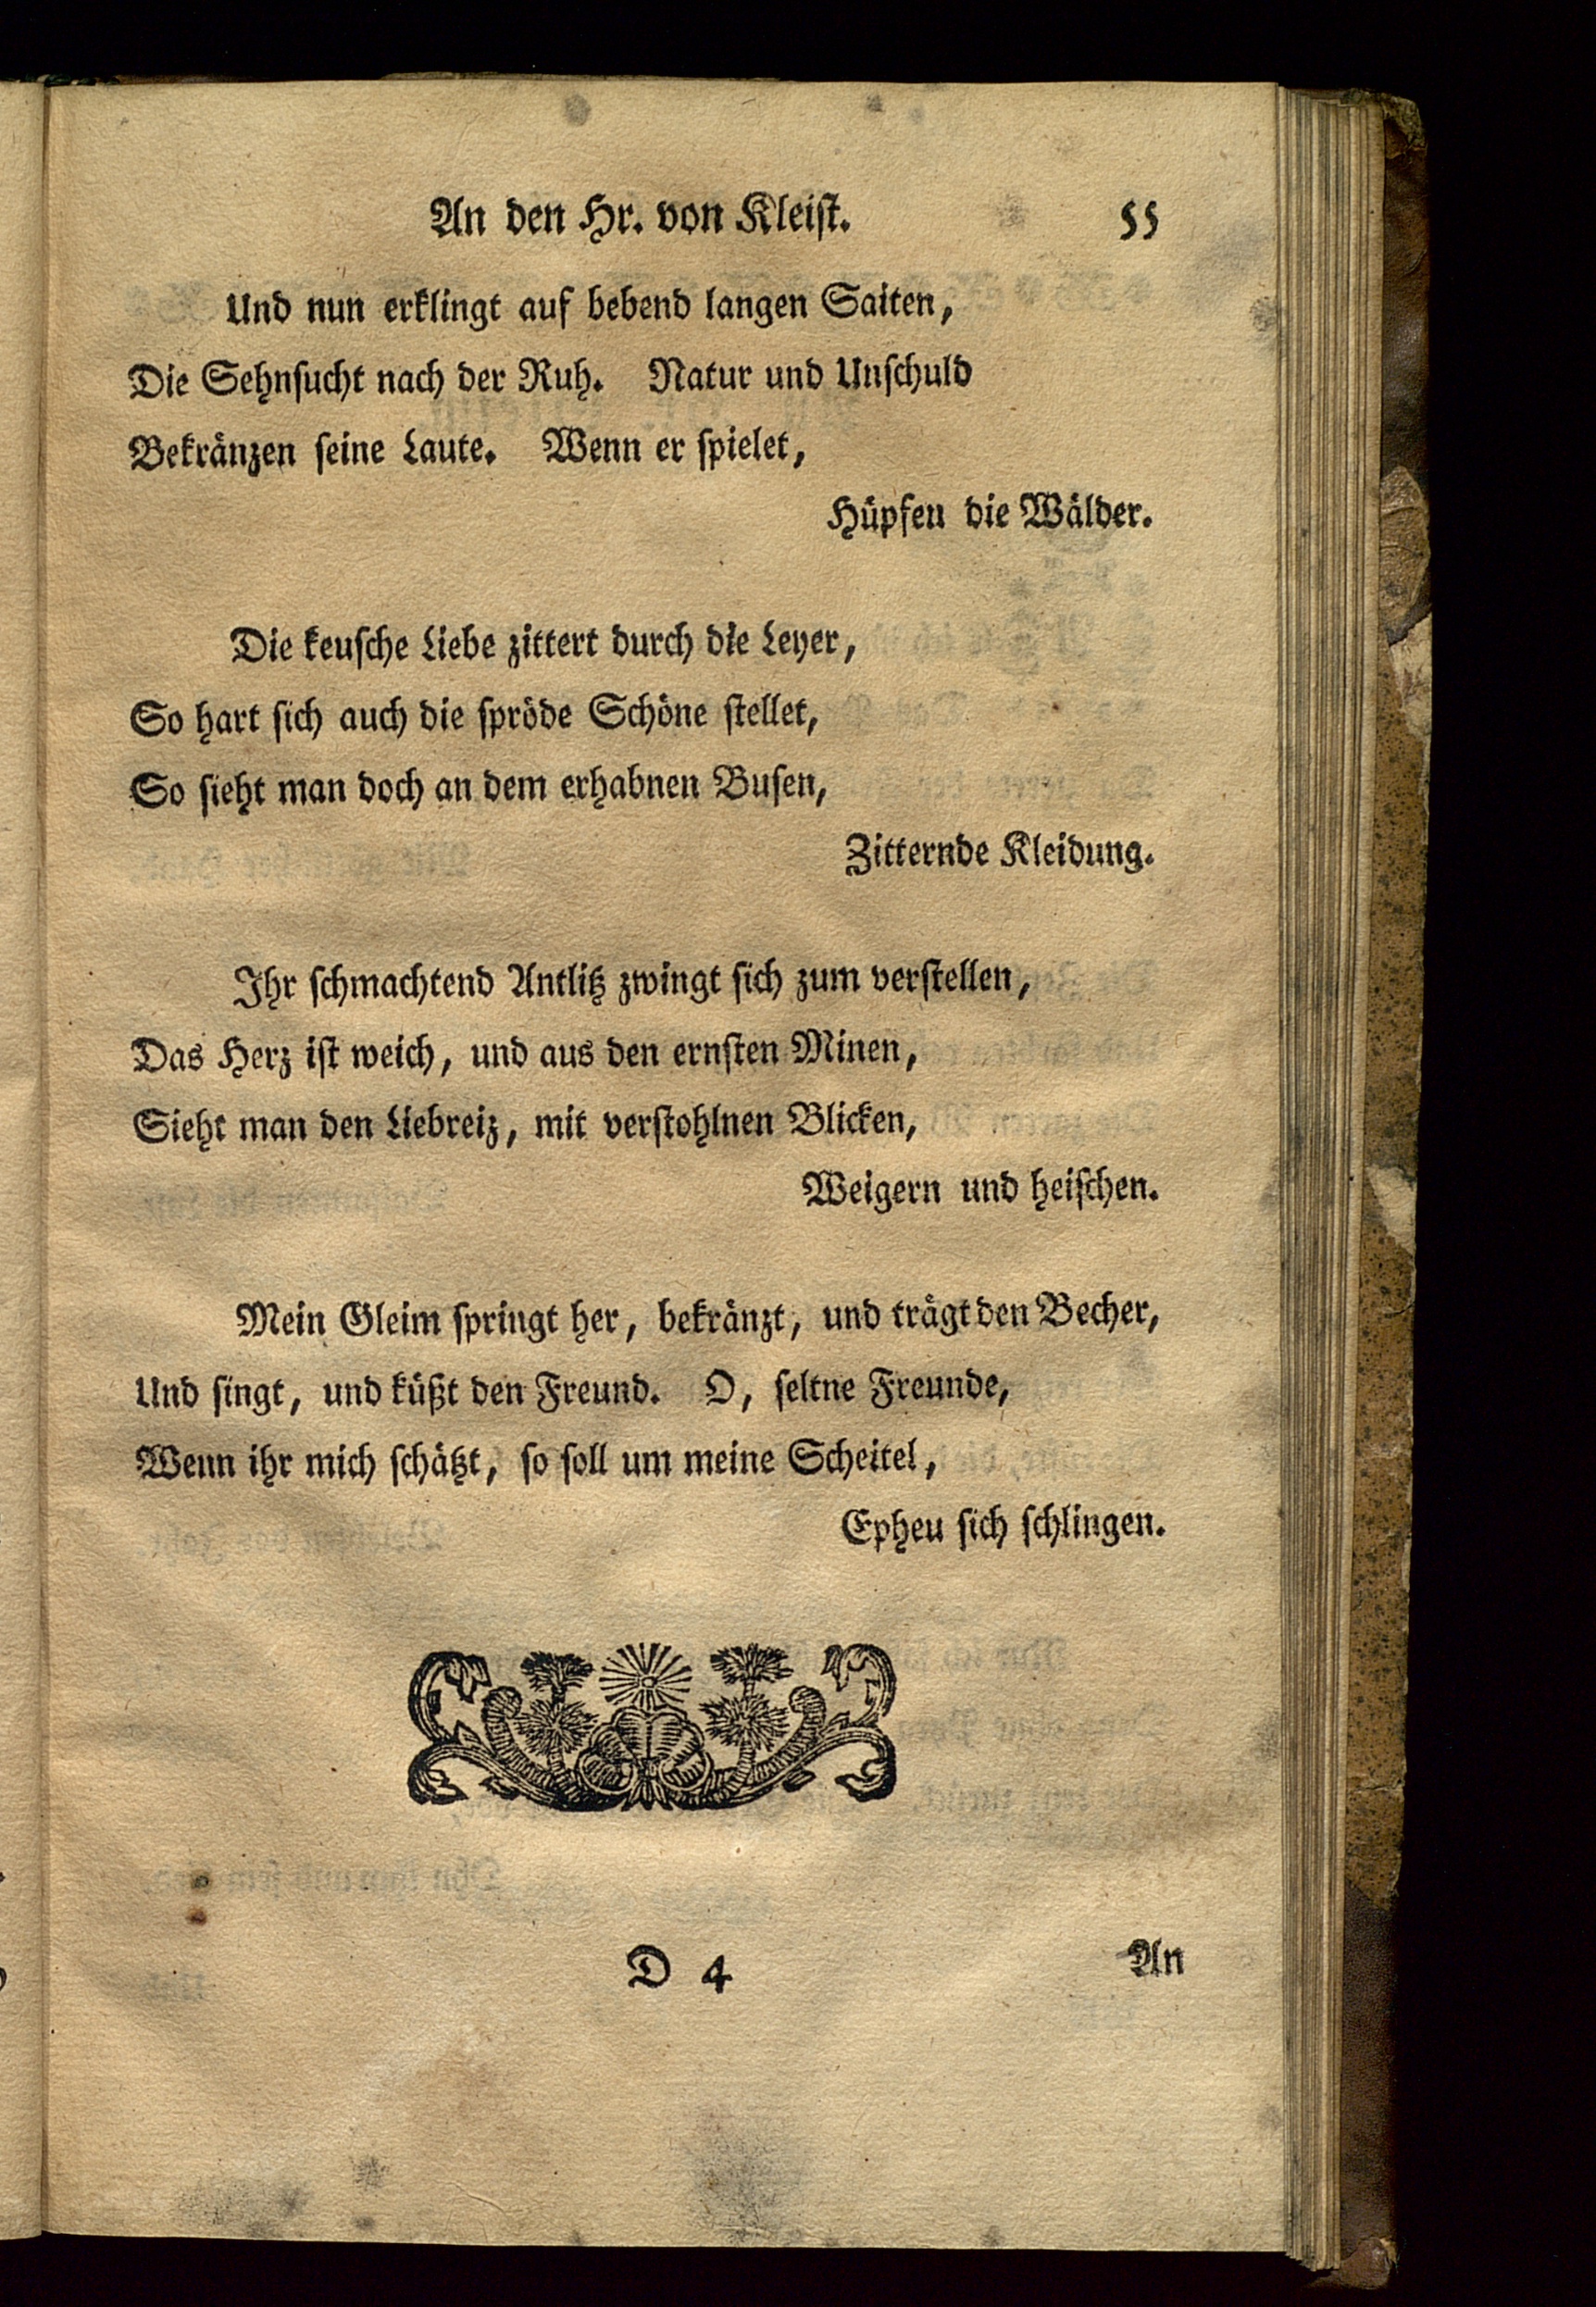 An den Hr. von Kleist. 55
Und nun erklingt auf bebend langen Saiten,
Die Sehnsucht nach der Ruh. Natur und Unschuld
Bekränzen seine Laute. Wenn er spielet,
Hüpfen die Wälder.
Die keusche Liebe zittert durch die Leyer,
So hart sich auch die spröde Schöne stellet,
So sieht man doch an dem erhabnen Busen,
Zitternde Kleidung.
Ihr schmachtend Antlitz zwingt sich zum verstellen,
Das Herz ist weich, und aus den ernsten Minen,
Sieht man den Liebreiz, mit verstohlnen Blicken,
Weigern und heischen.
Mein Gleim springt her, bekränzt, und trägt den Becher,
Und singt, und küßt den Freund. O, seltne Freunde,
Wenn ihr mich schätzt, so soll um meine Scheitel,
Epheu sich schlingen.
D 4 An